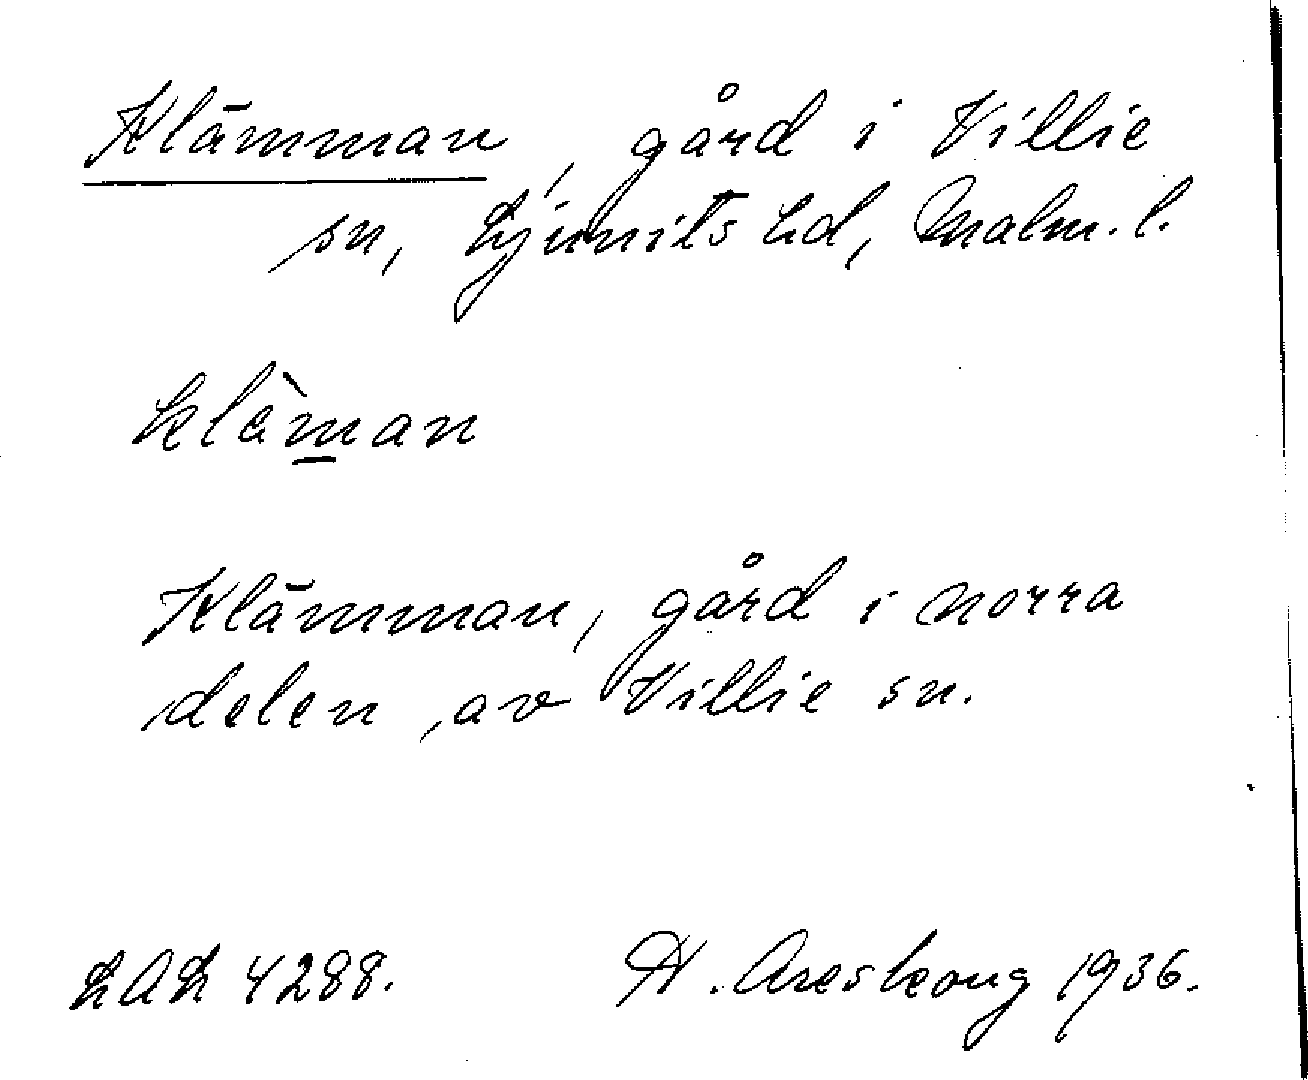 Klämman, gård i Villie
sn, Ljunits hd, Malm. l.
klàm̲an
Klämman, gård i norra
delen av Villie sn.
LAL 4288. H. Areskoug 1936.